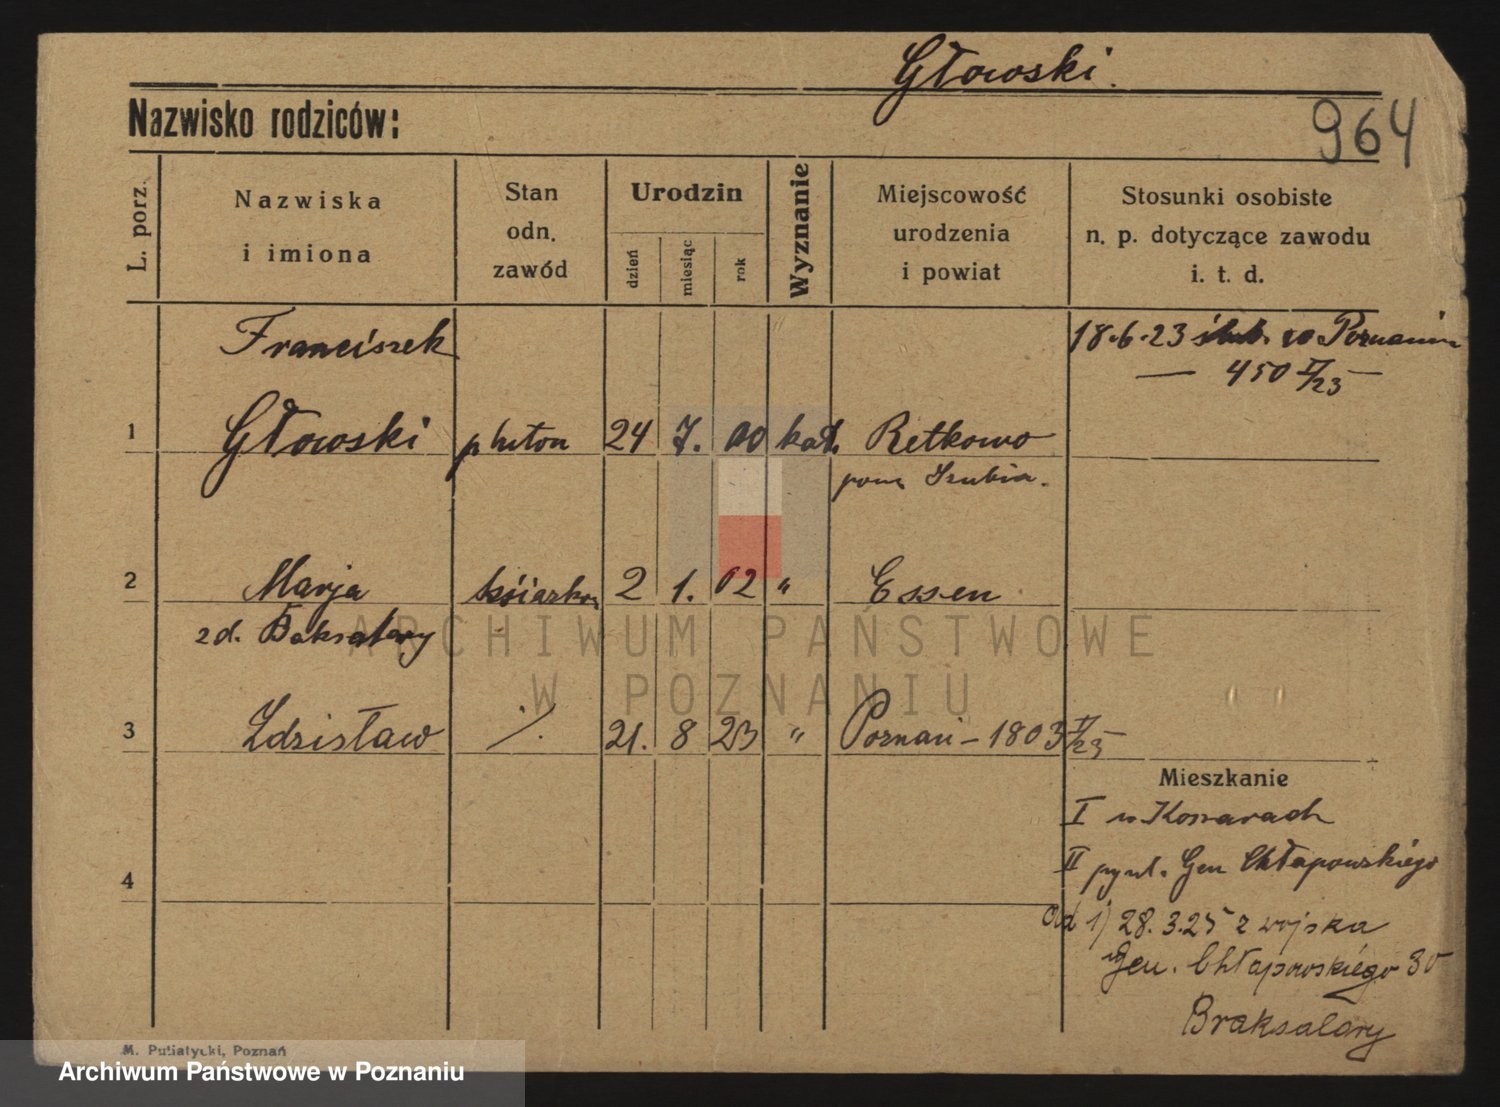 Głowski.
Nazwisko rodziców:
964
L. porz.
Nazwiska
i imiona
Stan
odn.
zawód
Urodzin
dzień
miesiąc
rok
Wyznanie
Miejscowość
urodzenia
i powiat
Stosunki osobiste
n. p. dotyczące zawodu
i. t. d.
Franciszek
18.6.23 ślub. w Poznaniu
— 450 II/23 —
1 Głowski 24 7. 00 kat. Retkowo
pow. Szubin.
2 Marja 2 1. 02 " Essen
zd. Braksalary
3 Zdzisław ·/. 21. 8 23 " Poznań – 1803 II/23 –
Mieszkanie
I w Konarach
II Gen Chłapowskiego
4
od 1) 28.3.25 z wojska
Gen. Chłapowskiego 30
Braksalary
ARCHIWUM PAŃSTWOWE
W POZNANIU
M. Putiatycki, Poznań
Archiwum Państwowe w Poznaniu